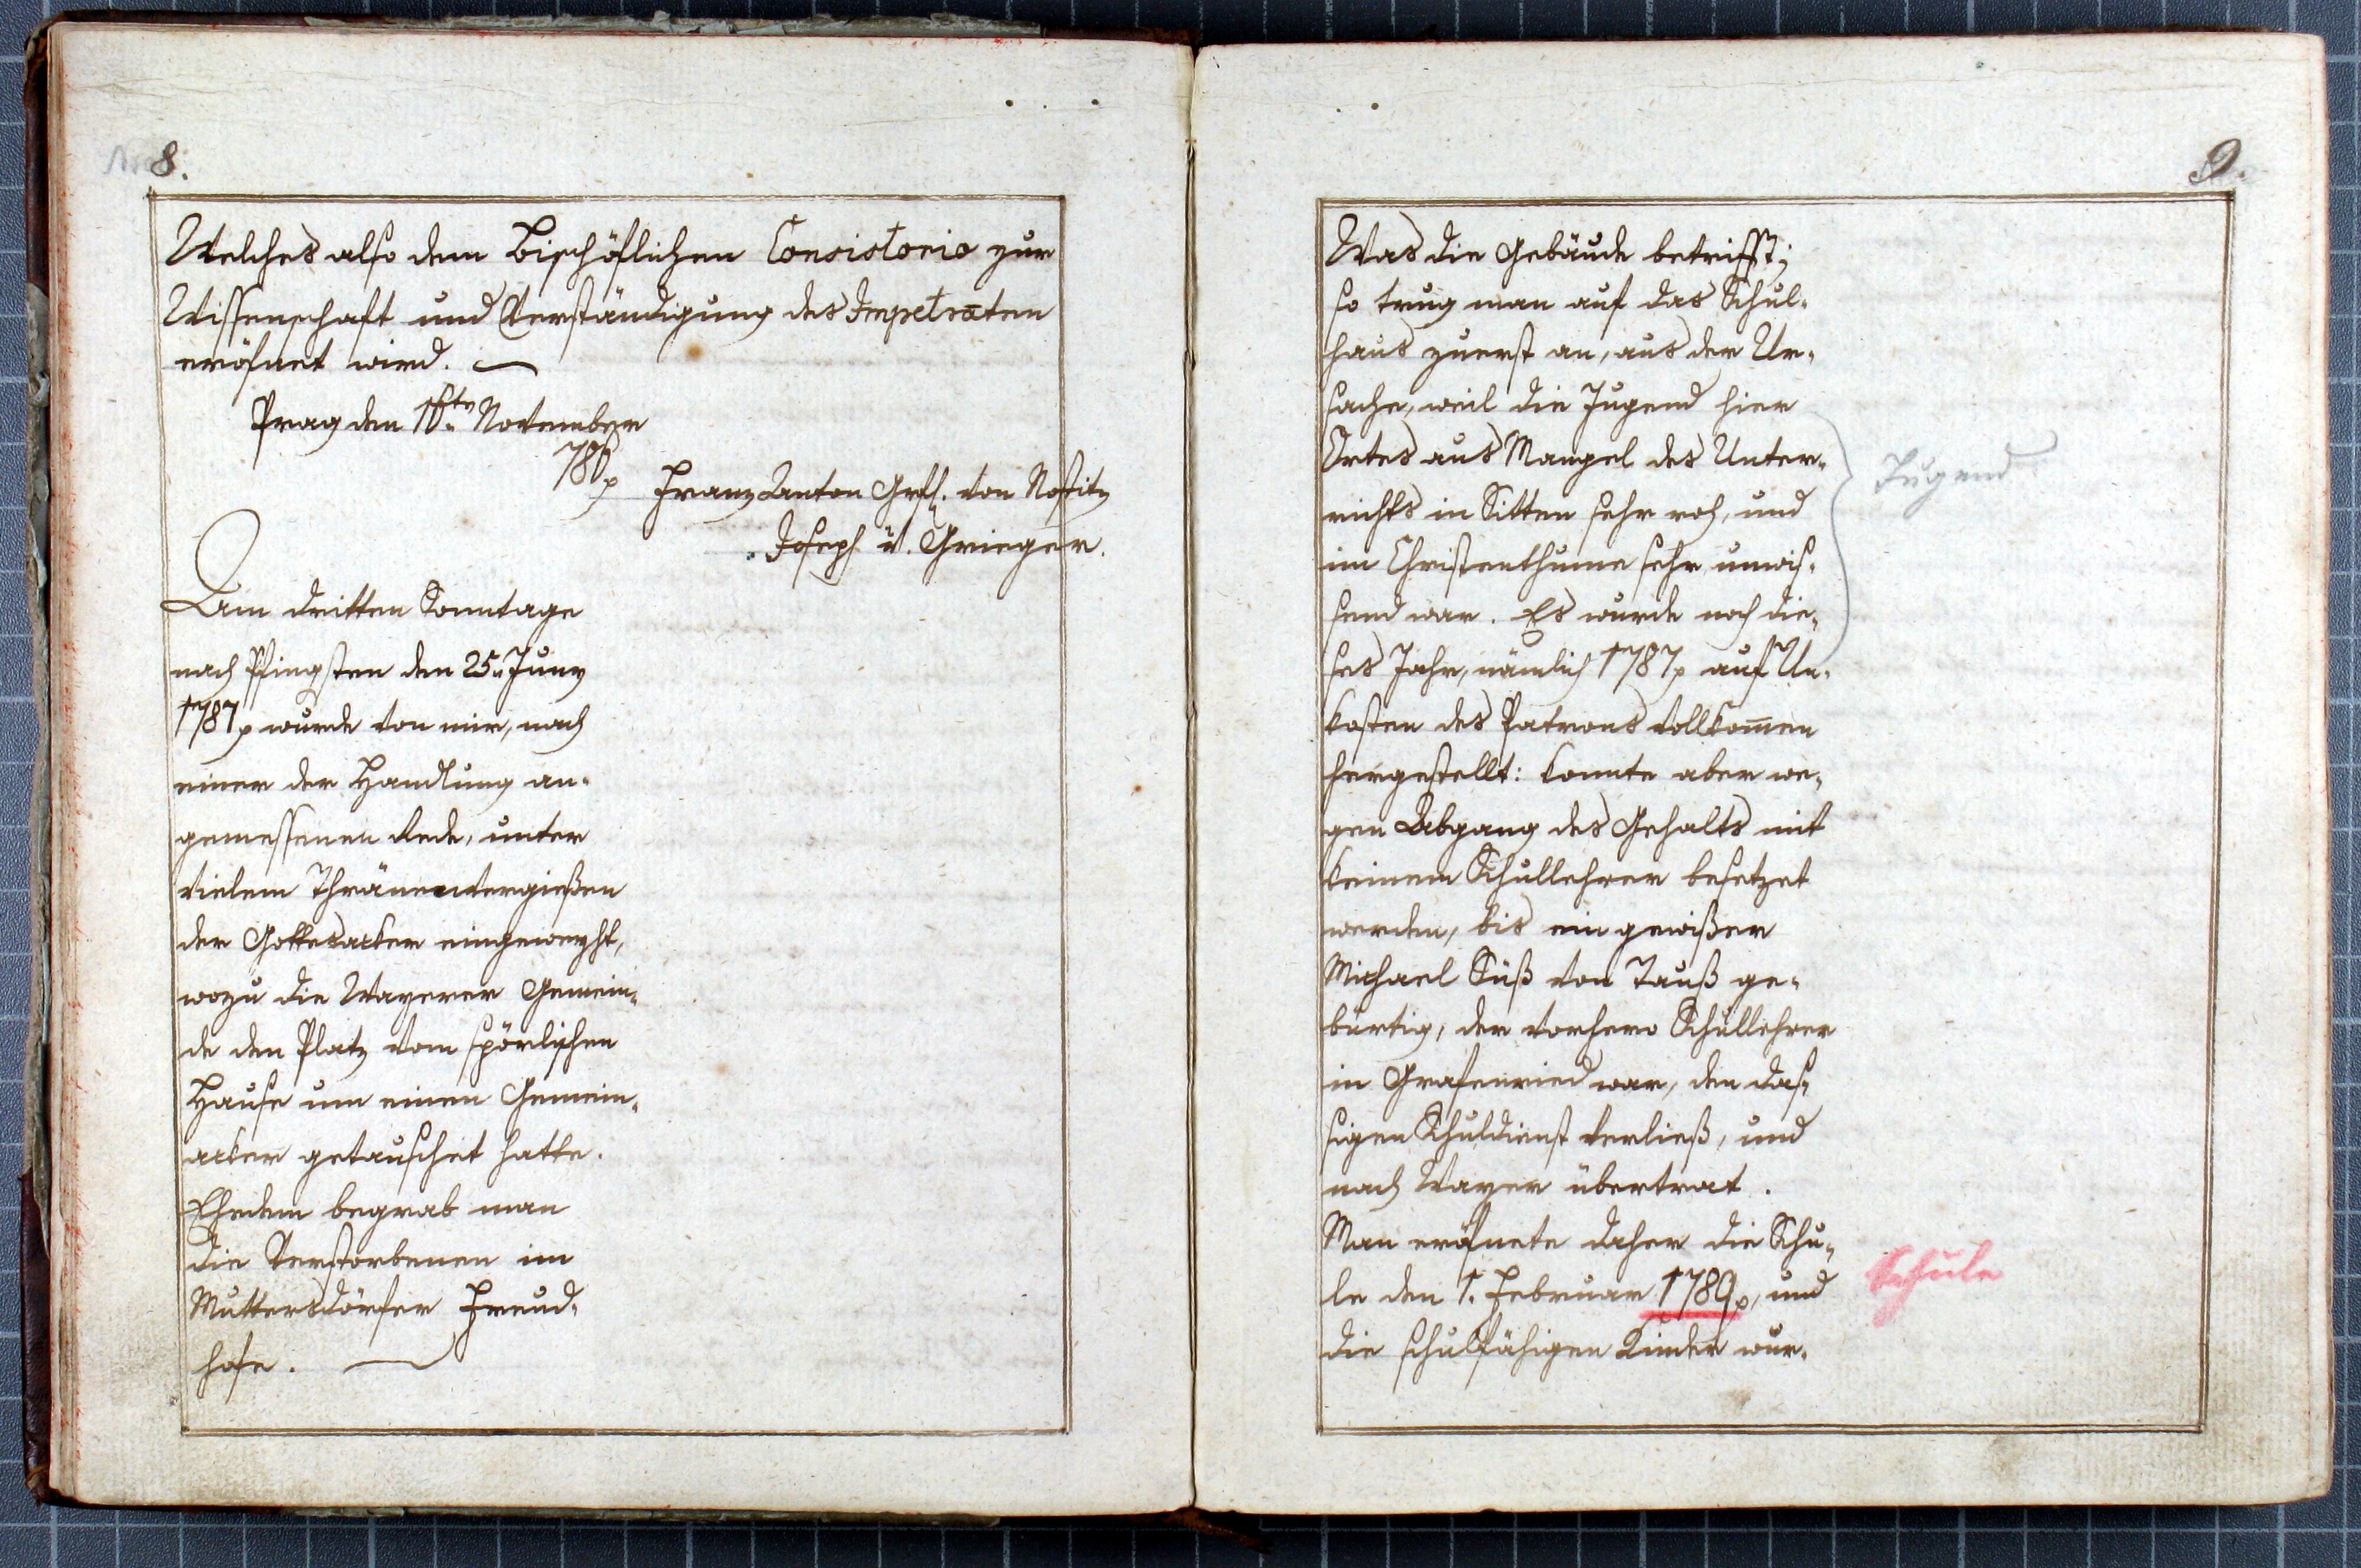 8.
Welches also dem Bischöflichen Consistorio zur
Wissenschaft und Verständigung des Impetraten
eröfnet wird.
Prag den 16tn November
786
Franz Anton Grf. von Nostitz
Joseph v. Grieger.
Am dritten Sonntage
nach Pfingsten den 25. Juny
1787 wurde von mir, nach
einer der Handlung an-
gemessenen Rede, unter
vielem Thränenvergießen
der Gottesacker eingeweyht,
wozu die Wayerer Gemein-
de den Platz vom spörlischen
Hause um einen Gemein-
acker getauschet hatte.
Ehedem begrab man
die Verstorbenen im
Muttersdörfer Freud-
hofe.
9.
Was die Gebäude betrifft;
so trug man auf das Schul-
haus zuerst an, aus der Ur-
sache, weil die Jugend hier
Ortes aus Mangel des Unter-
richts in Sitten sehr roh, und
im Christenthume sehr unwis-
send war. Es wurde noch die-
ses Jahr, nämlich 1787 auf Un-
kosten des Patrons vollkom̄en
hergestellt: konnte aber we-
gen Abgang des Gehalts mit
keinem Schullehrer besetzet
werden, bis ein gewißer
Michael Süß von Tauß ge-
bürtig, der vorhero Schullehrer
in Grafenried war, den das-
sigen Schuldienst verließ, und
nach Wayer übertrat.
Man eröfnete daher die Schu-
le den 1. Februar 1789, und
die schulfähigen Kinder wur-
Jugend
Schule